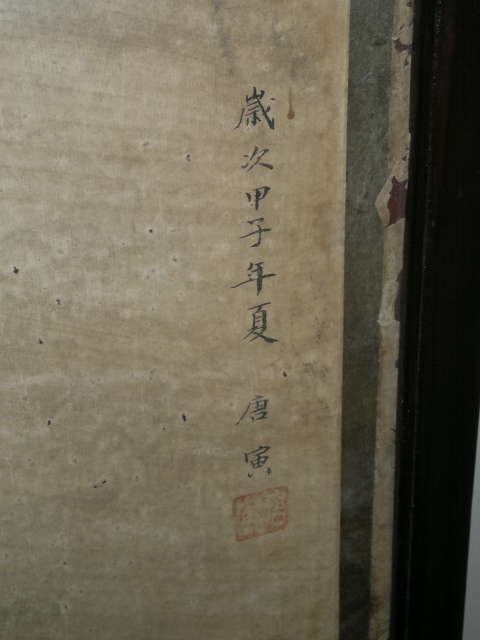 歲次甲子年夏 唐寅